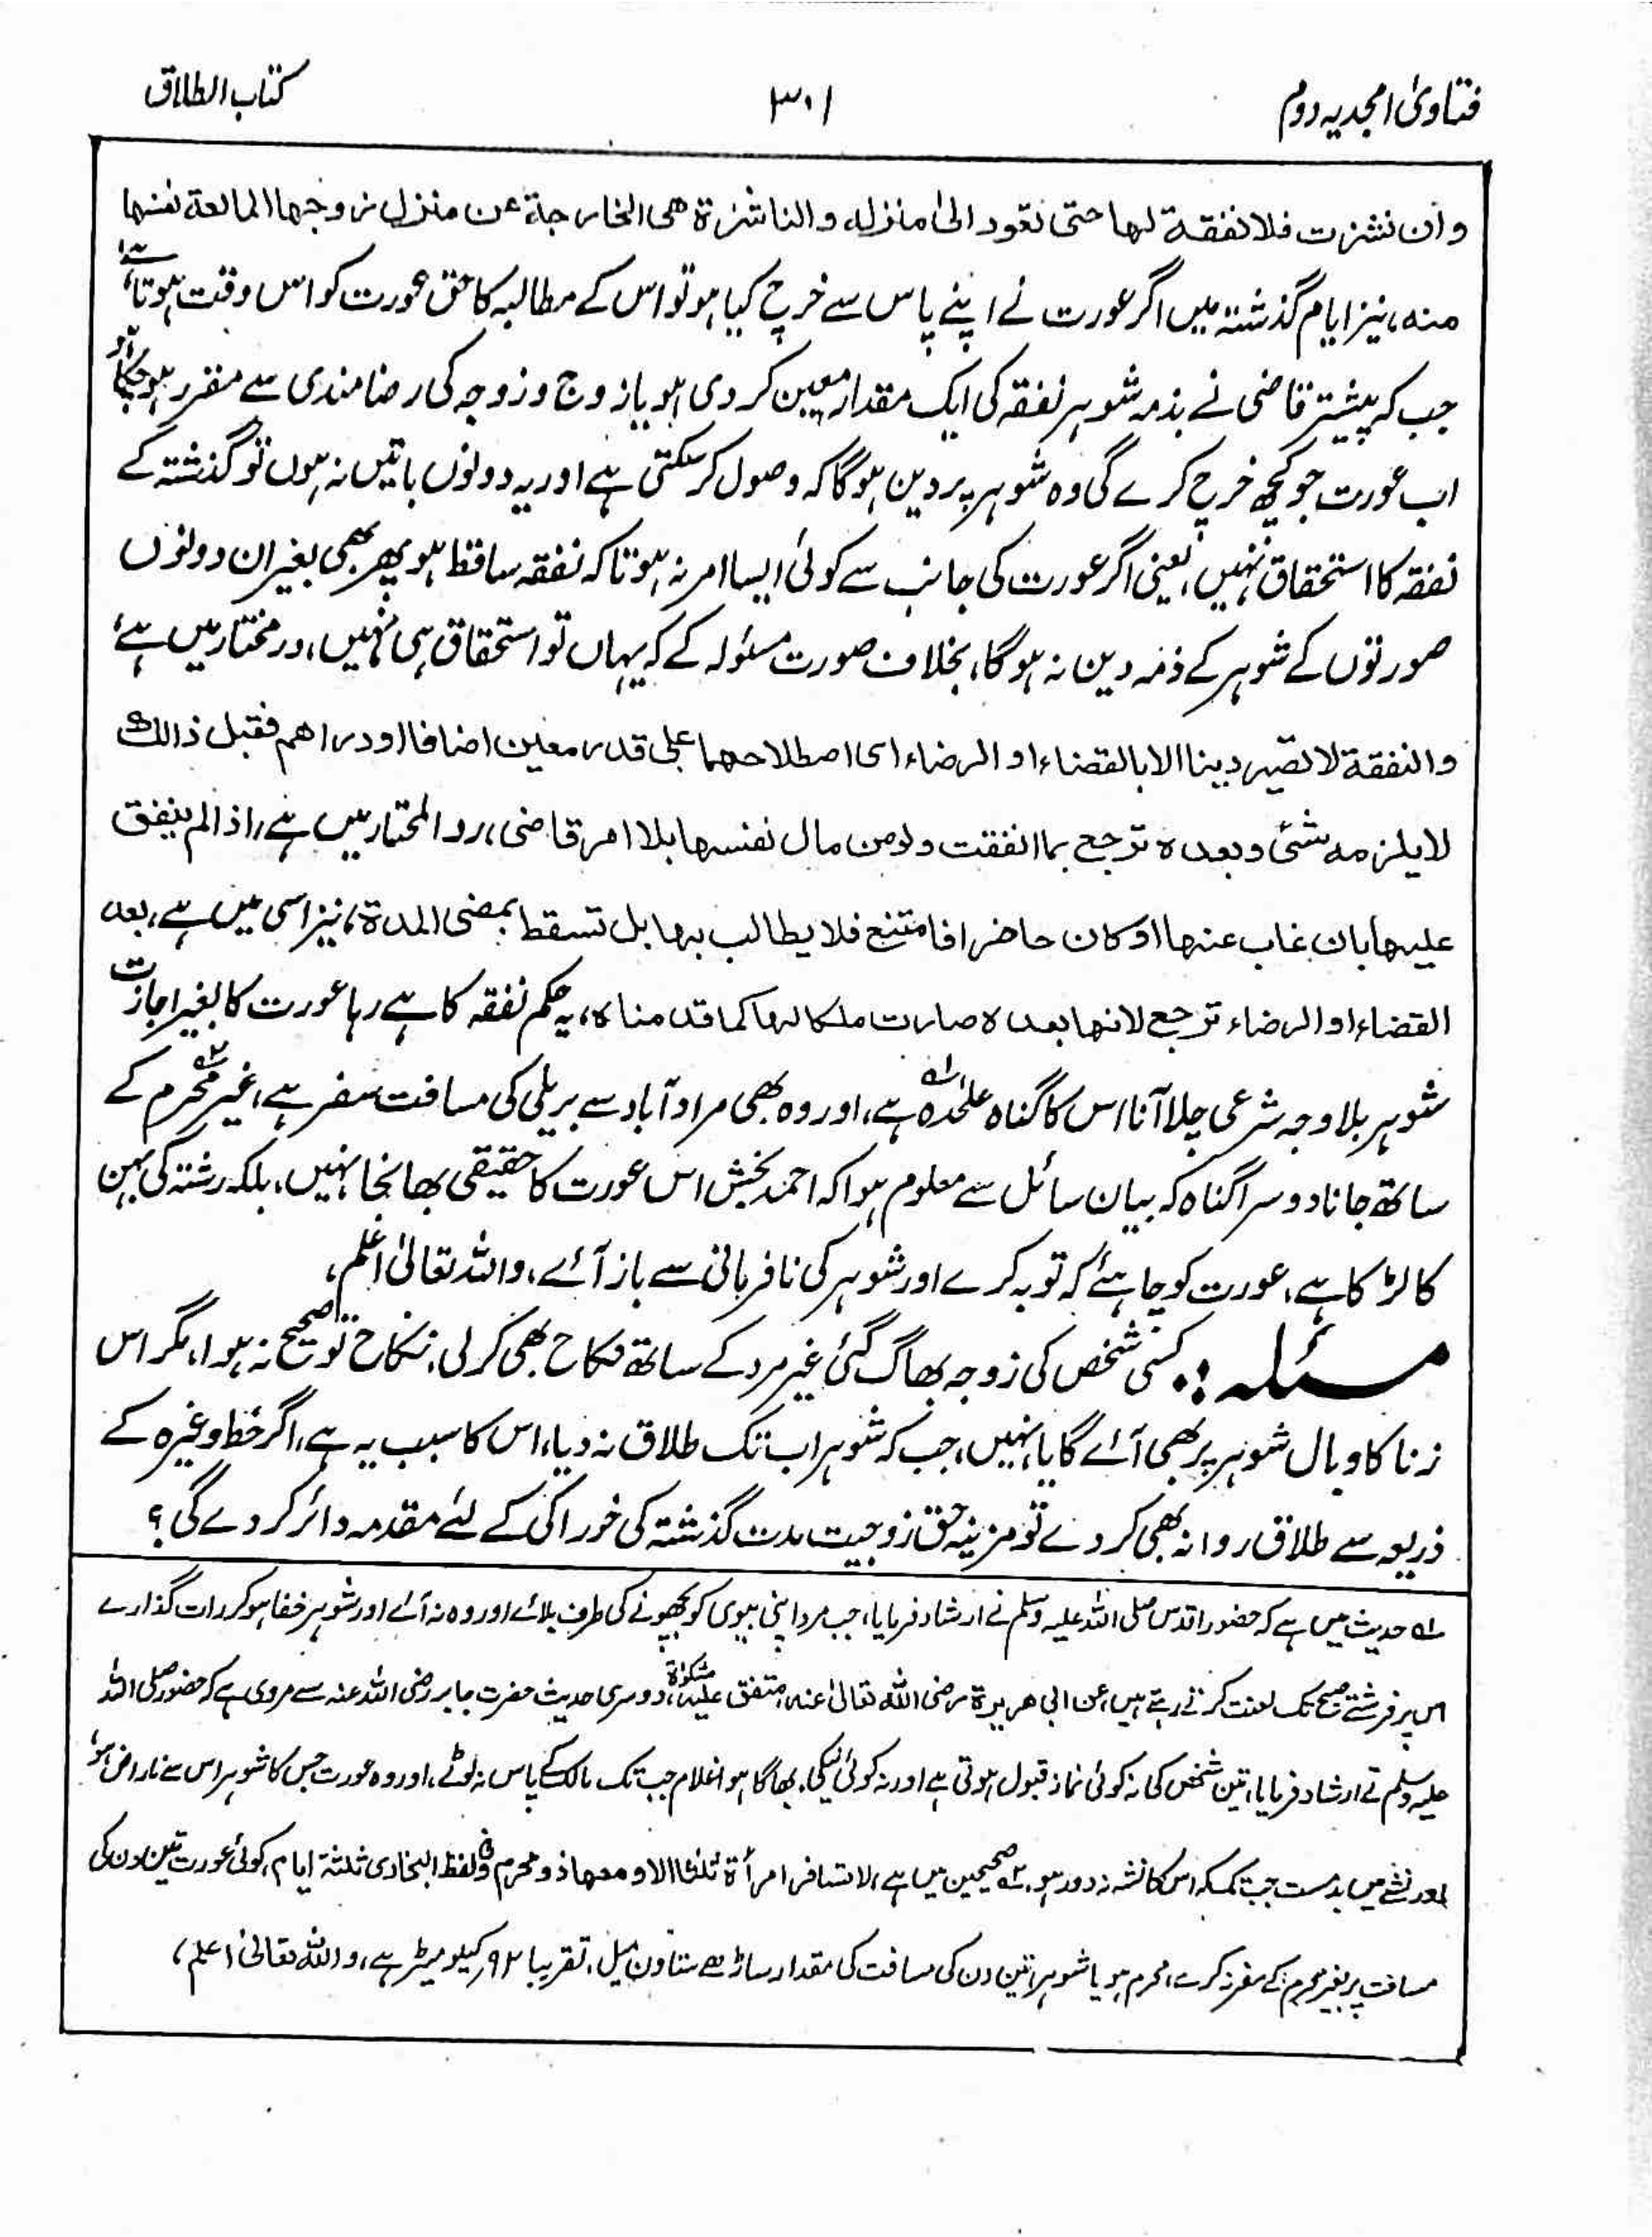 فتاویٰ امجدیہ دوم
۳۰۱
کتاب الطلاق
وان نشزت فلا نفقة لها حتی تعود الیٰ منزله والناشزة هی الخارجة عن منزل زوجها المانعة نفسها
منه، نیز ایام گذشتہ میں اگر عورت نے اپنے پاس سے خرچ کیا ہو تو اس کے مطالبہ کا حق عورت کو اس وقت ہوتا ہے
جب کہ پیشتر قاضی نے بذمہ شوہر نفقہ کی ایک مقدار معین کر دی ہو یا زوج و زوجہ کی رضامندی سے مقرر ہو چکا ہو
اب عورت جو کچھ خرچ کرے گی وہ شوہر پر دین ہوگا کہ وصول کر سکتی ہے اور یہ دونوں باتیں نہ ہوں تو گذشتہ کے
نفقہ کا استحقاق نہیں، یعنی اگر عورت کی جانب سے کوئی ایسا امر نہ ہوتا کہ نفقہ ساقط ہو پھر بھی بغیر ان دونوں
صورتوں کے شوہر کے ذمہ دین نہ ہوگا، بخلاف صورت مسئولہ کے کہ یہاں تو استحقاق ہی نہیں، درمختار میں ہے،
والنفقة لا تصیر دینا الا بالقضاء او الرضاء ای اصطلاحهما علی قدر معین اصنافا او دراهم فقبل ذالك
لا یلزمه شئی و بعده ترجع بما انفقت ولو من مال نفسها بلا امر قاضی، رد المحتار میں ہے، اذا لم ینفق
علیها بان غاب عنها او کان حاضرا فامتنع فلا یطالب بها بل تسقط بمضی المدة، نیز اسی میں ہے، بعد
القضاء او الرضاء ترجع لانها بعده صارت ملکا لها کما قدمناه، یہ حکم نفقہ کا ہے رہا عورت کا بغیر اجازت
شوہر بلا وجہ شرعی چلا آنا اس کا گناہ علٰحدہ ہے،۱؎ اور وہ بھی مراد آباد سے بریلی کی مسافت سفر ہے، غیر محرم۲؎ کے
ساتھ جانا دوسرا گناہ کہ بیان سائل سے معلوم ہوا کہ احمد بخش اس عورت کا حقیقی بھانجا نہیں، بلکہ رشتہ کی بہن
کا لڑکا ہے، عورت کو چاہئے کہ توبہ کرے اور شوہر کی نافرمانی سے باز آئے، واللہ تعالیٰ اعلم،
مسئلہ :۔ کسی شخص کی زوجہ بھاگ گئی غیر مرد کے ساتھ نکاح بھی کر لی، نکاح تو صحیح نہ ہوا، مگر اس
زنا کا وبال شوہر پر بھی آئے گا یا نہیں، جب کہ شوہر اب تک طلاق نہ دیا، اس کا سبب یہ ہے، اگر خط وغیرہ کے
ذریعہ سے طلاق روانہ بھی کر دے تو مزینہ حق زوجیت مدت گذشتہ کی خوراکی کے لئے مقدمہ دائر کر دے گی؟
۱؎ حدیث میں ہے کہ حضور اقدس صلی اللہ علیہ وسلم نے ارشاد فرمایا، جب مرد اپنی بیوی کو بچھونے کی طرف بلائے اور وہ نہ آئے اور شوہر خفا ہو کر رات گذارے
اس پر فرشتے صبح تک لعنت کرتے رہتے ہیں، عن ابی هریرة رضی الله تعالیٰ عنه، متفق علیه، مشکوٰة دوسری حدیث حضرت جابر رضی اللہ عنہ سے مروی ہے کہ حضور صلی اللہ
علیہ وسلم نے ارشاد فرمایا، تین شخص کی نہ کوئی نماز قبول ہوتی ہے اور نہ کوئی نیکی، بھاگا ہوا غلام جب تک مالک کے پاس نہ لوٹے، اور وہ عورت جس کا شوہر اس سے ناراض ہو،
اور نشے میں بدمست جب تک کہ اس کا نشہ نہ دور ہو، ۲؎ صحیحین میں ہے، لا تسافر امرأة ثلٰثا الا و معها ذو محرم و فی لفظ البخاری ثلٰثة ایام، کوئی عورت تین دن کی
مسافت پر بغیر محرم کے سفر نہ کرے، محرم ہو یا شوہر، تین دن کی مسافت کی مقدار ساڑھے ستاون میل، تقریبا ۹۲ کیلو میٹر ہے، واللہ تعالیٰ اعلم،